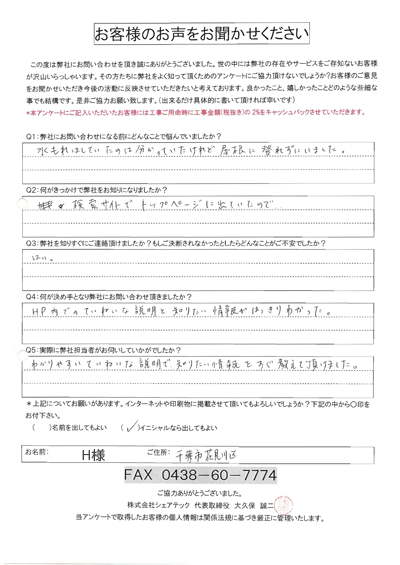 お客様のお声をお聞かせください
この度は弊社にお問い合わせを頂き誠にありがとうございました。世の中には弊社の存在やサービスをご存知ないお客様
が沢山いらっしゃいます。その方たちに弊社をよく知って頂くためのアンケートにご協力頂けないでしょうか?お客様のご意見
をお聞かせいただき今後の活動に反映させていただきたいと考えております。良かったこと、嬉しかったことどのような些細な
事でも結構です。是非ご協力お願い致します。(出来るだけ具体的に書いて頂ければ幸いです)
*本アンケートにご記入いただいたお客様には工事ご用命時に工事金額(税抜き)の 2%をキャッシュバックさせていただきます。
Q1:弊社にお問い合わせになる前にどんなことで悩んでいましたか?
水もれはしていたのは分かっていたけれど 屋根に登れずにいました。
Q2:何がきっかけで弊社をお知りになりましたか?
検索サイトで トップページに出ていたので
Q3:弊社を知りすぐにご連絡頂けましたか?もしご決断されなかったとしたらどんなことがご不安でしたか?
はい。
Q4:何が決め手となり弊社にお問い合わせ頂きましたか?
HP内でのていねいな説明と知りたい情報がはっきりわかった。
Q5:実際に弊社担当者がお伺いしていかがでしたか?
わかりやすいていねいな説明で知りたい情報をすぐ教えて頂けました。
*上記についてお願いがあります。インターネットや印刷物に掲載させて頂いてもよろしいでしょうか?下記の中から〇印を
お付下さい。
( )名前を出してもよい (✓)イニシャルなら出してもよい
お名前: H様 ご住所: 千葉市花見川区
FAX 0438-60-7774
ご協力ありがとうございました。
株式会社シェアテック 代表取締役 大久保 誠二
当アンケートで取得したお客様の個人情報は関係法規に基づき厳正に管理いたします。